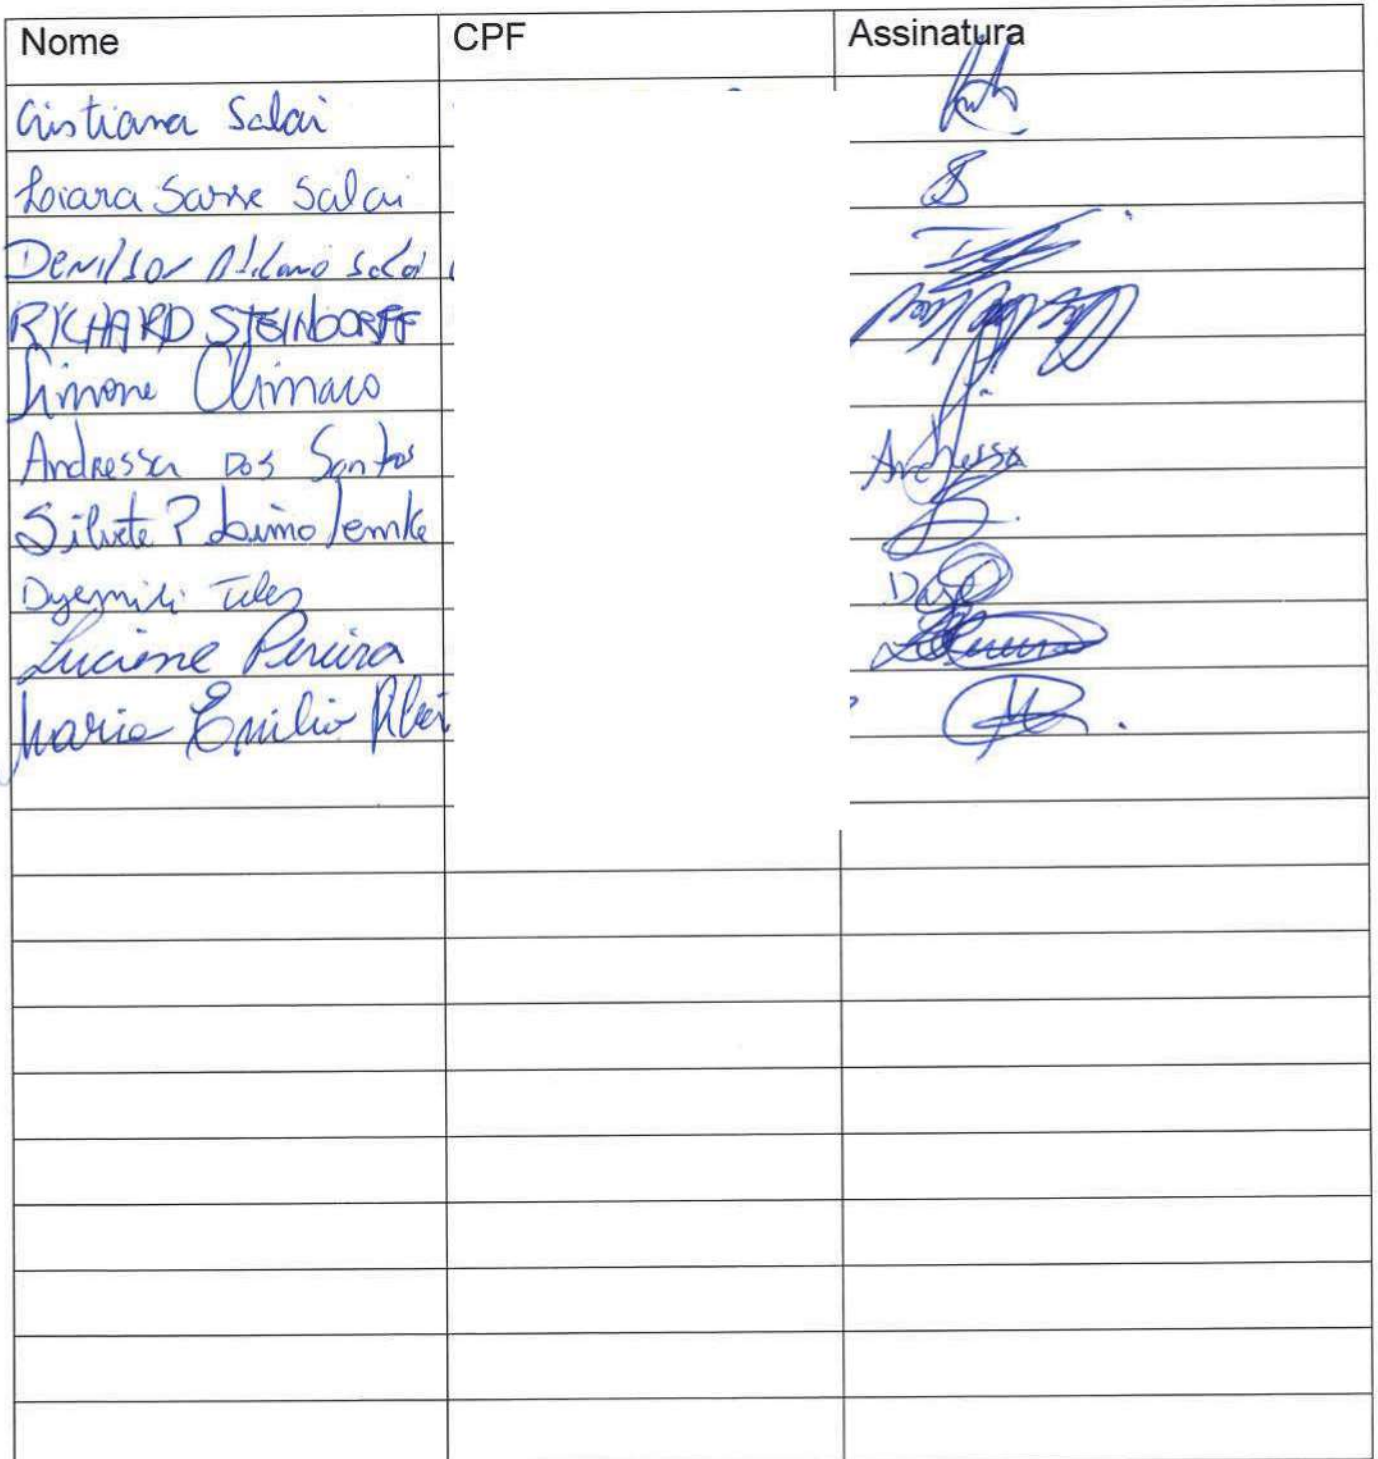 Nome CPF Assinatura
Cristiana Salai
Loiara Sasse Salai
Denilson Salai
RICHARD STEINDORFF
Simone Climaco
Andressa Dos Santos Andressa
Silvete P Lima Lemke
Dyemili Teles
Luciene Pereira
Maria Emilia